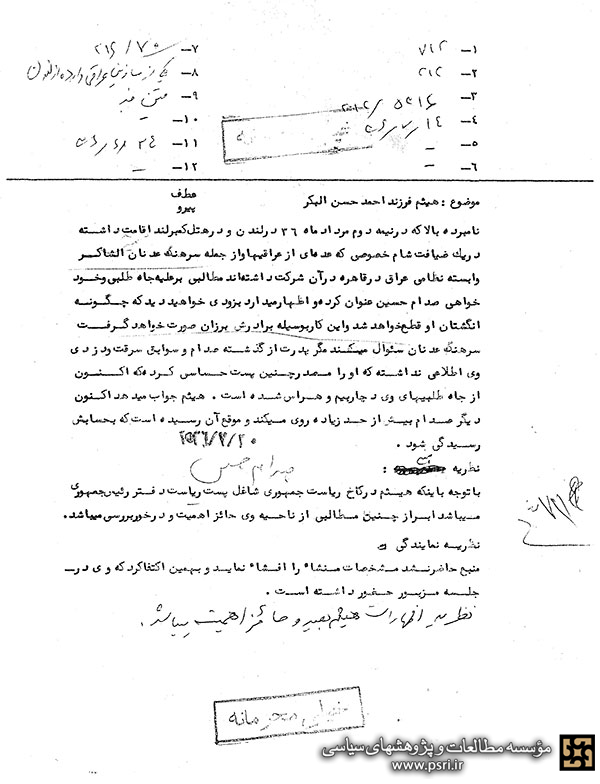 ۱– ۷۱۲
۲– ۲۱۲
۳–
۴– ۱۴
۵– –
۶– –
۷– ۲۱۶/۷۵
۸– یکی از
۹– متن خبر
۱۰–
۱۱–
۱۲– –
موضوع : هیثم فرزند احمد حسن البکر
عطف
پیرو
نامبرده بالا که در نیمه دوم مرداد ماه ۳۶ در لندن و در هتل کمبرلند اقامت داشته
در یك ضیافت شام خصوصی که عده‌ای از عراقیها و از جمله سرهنگ عدنان الشاکر
وابسته نظامی عراق در قاهره در آن شرکت داشته‌اند مطالبی بر علیه جاه طلبی و خود
خواهی صدام حسین عنوان کرده و اظهار میدارد بزودی خواهید دید که چگونه
انگشتان او قطع خواهد شد و این کار بوسیله برادرش برزان صورت خواهد گرفت
سرهنگ عدنان سئوال میکند مگر پدرت از گذشته صدام و سوابق سرقت و دزدی
وی اطلاعی نداشته که او را مصدر چنین پست حساسی کرده که اکنون
از جاه طلبیهای وی دچار بیم و هراس شده است . هیثم جواب میدهد اکنون
دیگر صدام بیش از حد زیاده روی میکند و موقع آن رسیده است که بحسابش
رسیدگی شود .
۲۵۳۶/۷/۲۰
صدام حسین
نظریه :
با توجه باینکه هیثم در کاخ ریاست جمهوری شاغل پست ریاست دفتر رئیس جمهوری
میباشد ابراز چنین مطالبی از ناحیه وی حائز اهمیت و در خور بررسی میباشد.
نظریه نمایندگی
منبع حاضر نشد مشخصات منشاء را افشاء نماید و بهمین اکتفا کرد که وی در
جلسه مزبور حضور داشته است .
نظریه اظهارات هیثم بعید و حائز اهمیت میباشد.
خیلی محرمانه
مؤسسه مطالعات و پژوهشهای سیاسی
www.psri.ir